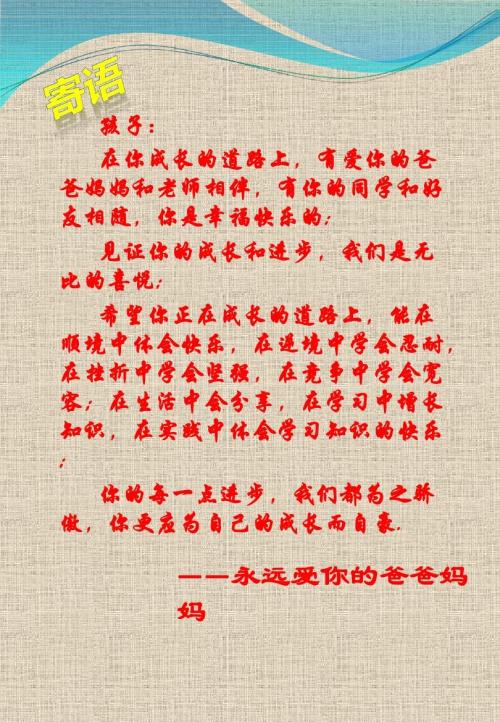 寄语
孩子：
在你成长的道路上，有爱你的爸
爸妈妈和老师相伴，有你的同学和好
友相随，你是幸福快乐的；
见证你的成长和进步，我们是无
比的喜悦；
希望你正在成长的道路上，能在
顺境中体会快乐，在逆境中学会忍耐，
在挫折中学会坚强，在竞争中学会宽
容；在生活中会分享，在学习中增长
知识，在实践中体会学习知识的快乐
；
你的每一点进步，我们都为之骄
傲，你更应为自己的成长而自豪.
——永远爱你的爸爸妈
妈